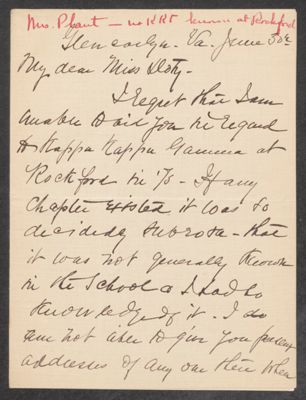 Mrs. Plant - no KKΓ known at Rockford
Glencarlyn. Va. June 30th
My dear Miss Doty -
I regret that I am
unable to aid you in regard
to Kappa Kappa Gamma at
Rockford in '75 - If any
Chapter existed it was so
decidedly subrosa - that
it was not generally known
in the School & I had no
knowledge of it. I do
am not able to give you present
addresses of any one there when